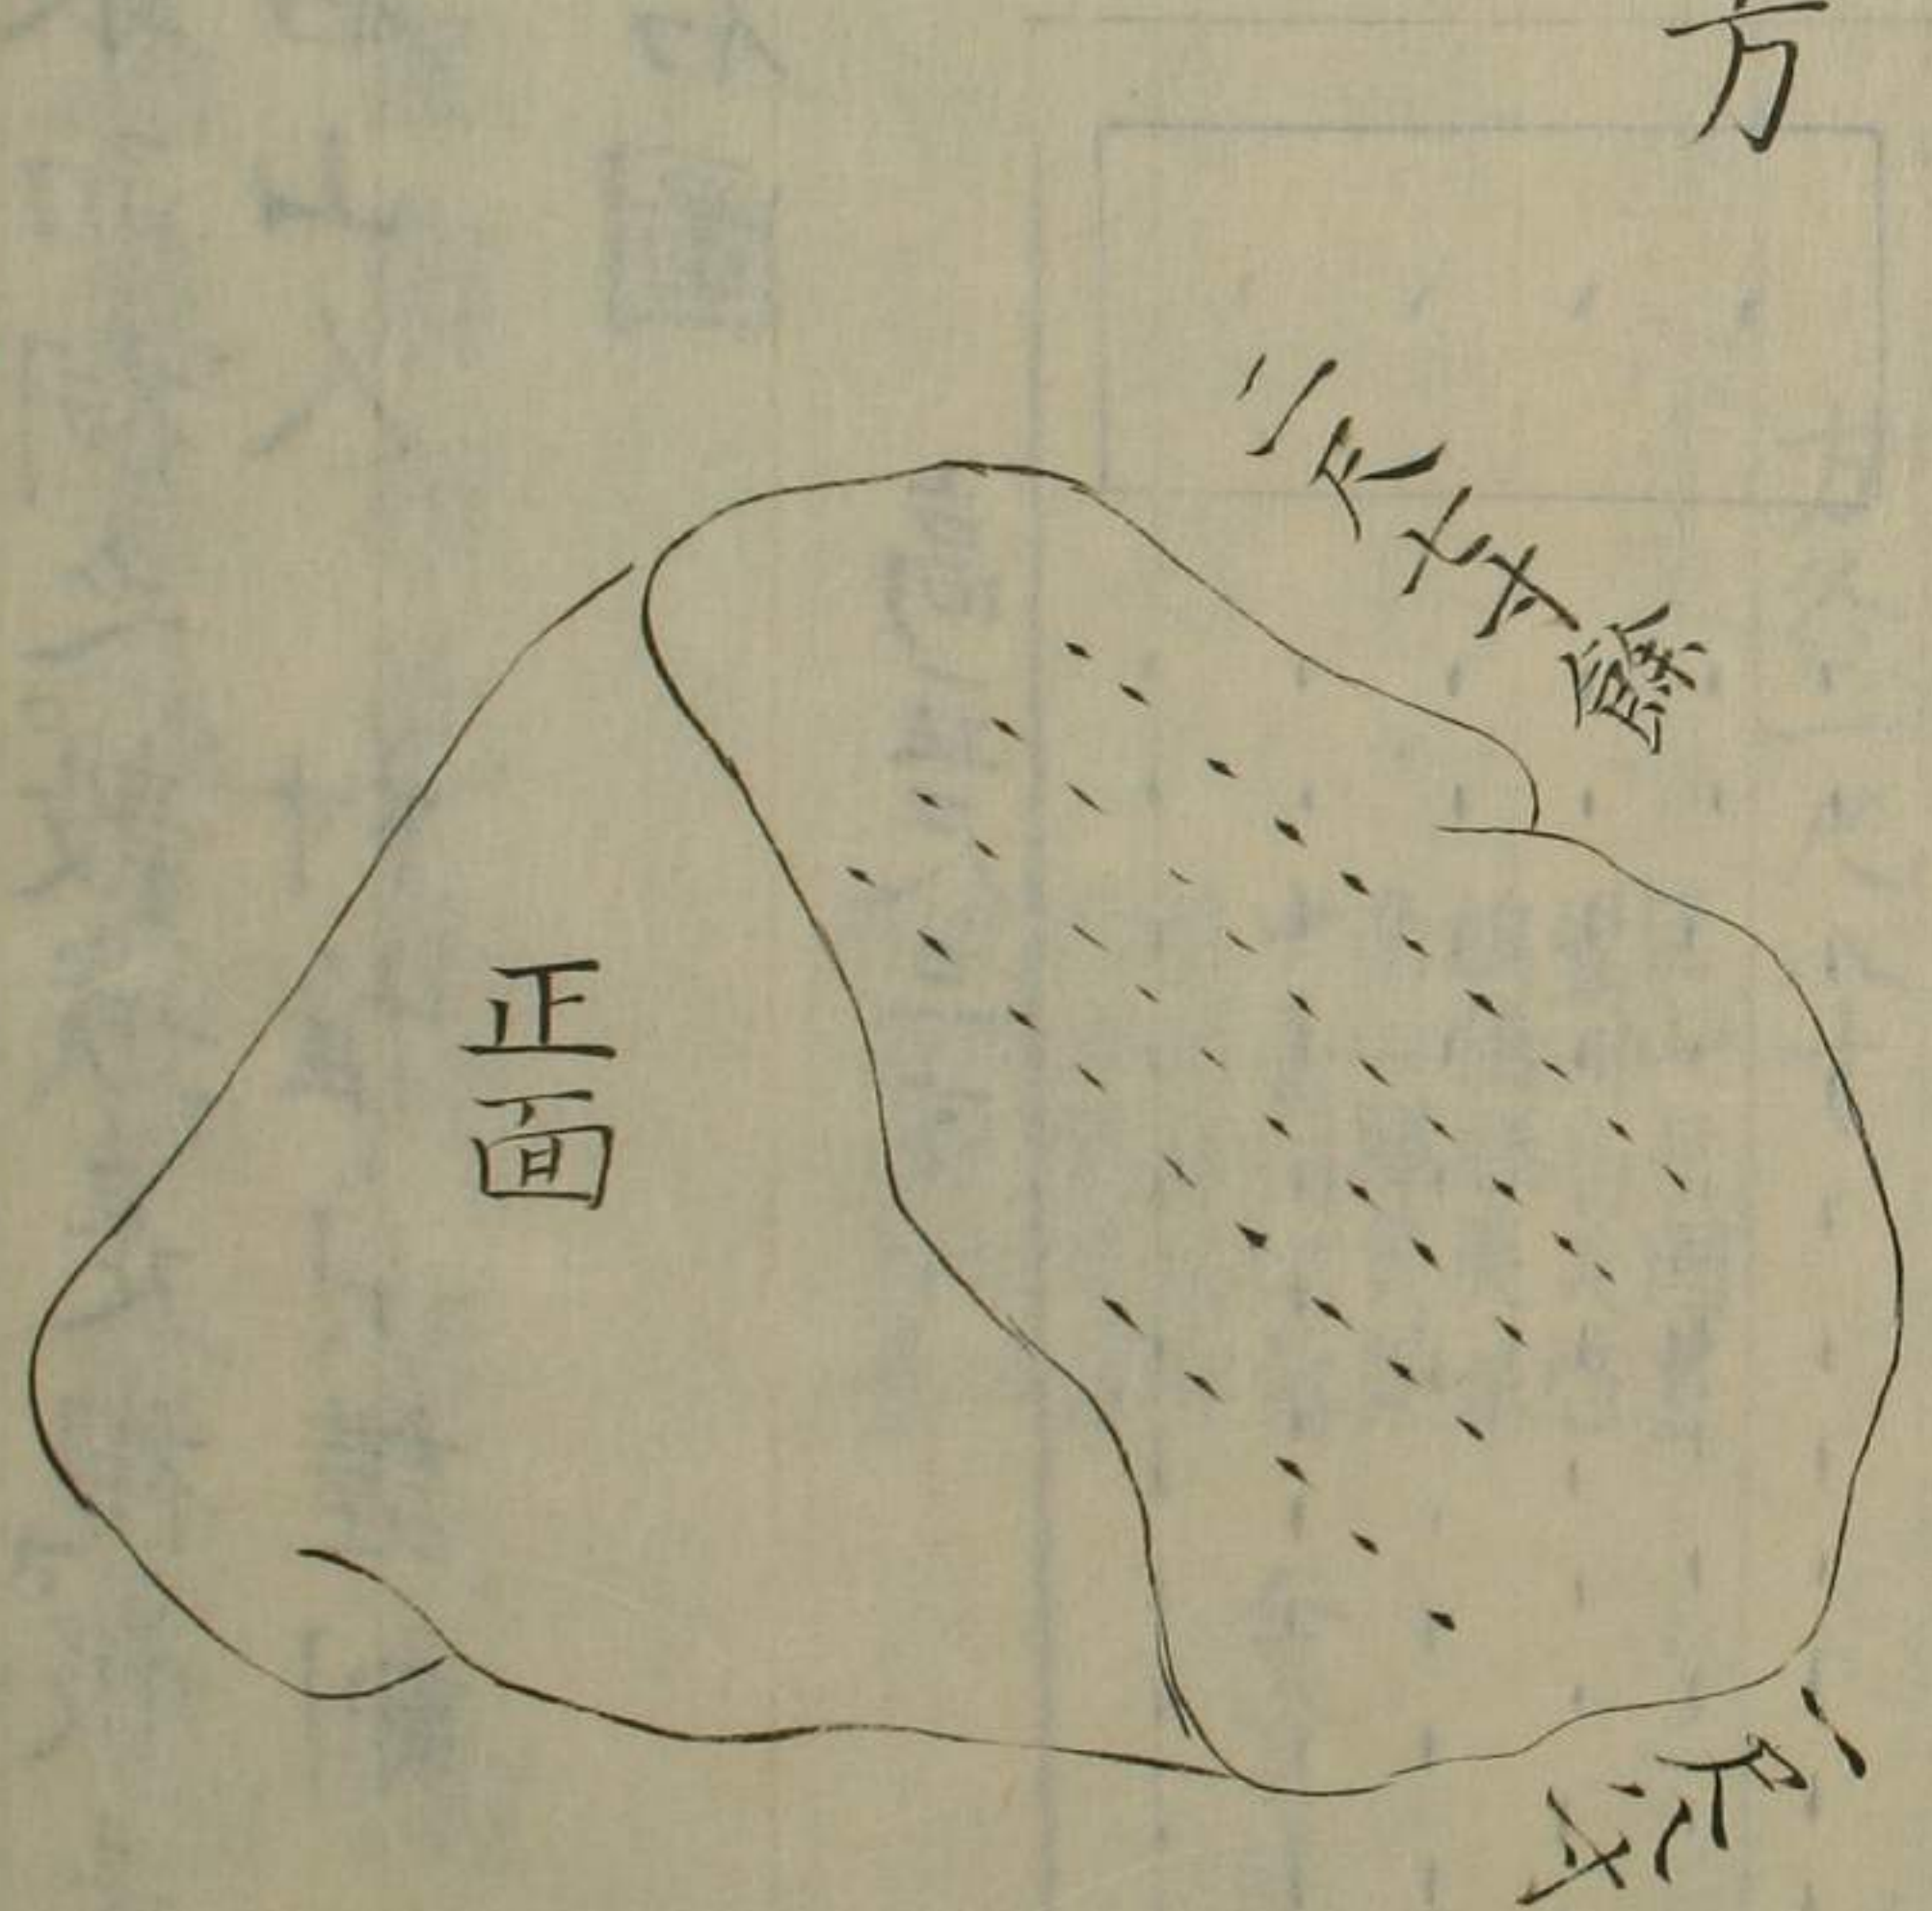 方
二尺七寸餘
正面
一尺